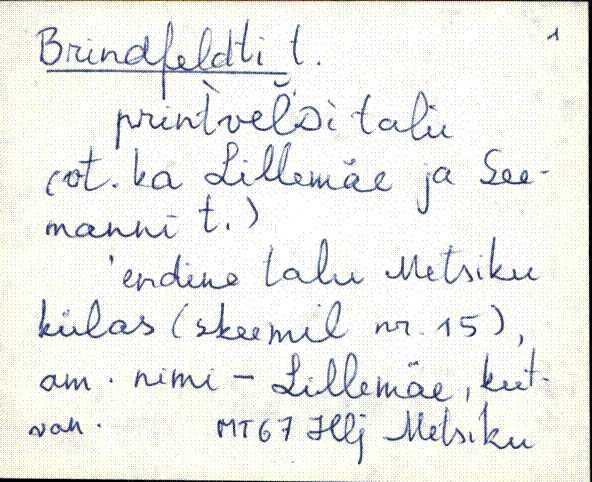 Brindfeldti t. 1
prin̆tvel̆si talu
(vt. ka Lillemäe ja See-
manni t.)
'endine talu Metsiku
külas (skeemil nr. 15),
am. nimi - Lillemäe, küt-
van. MT67 Hlj Metsiku